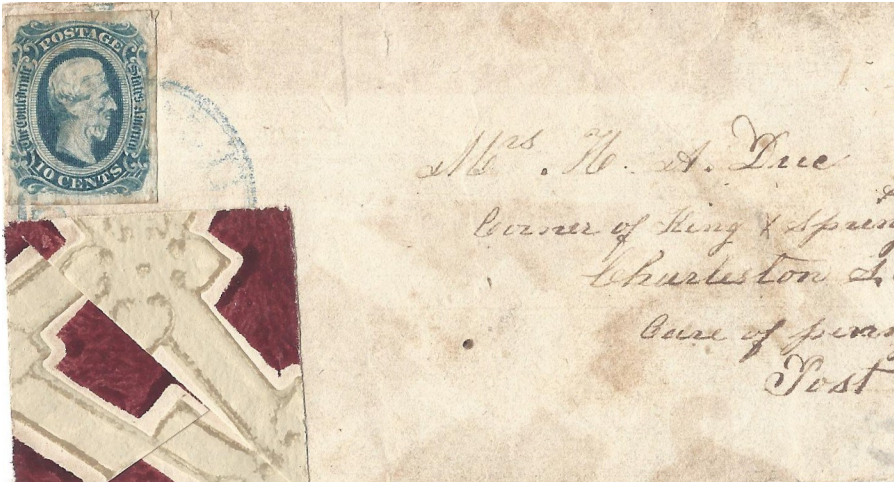 POSTAGE
The Confederate States America
10 CENTS
Mrs. H. A. Due
Corner of King & Spring
Charleston S.
Care of penny
Post